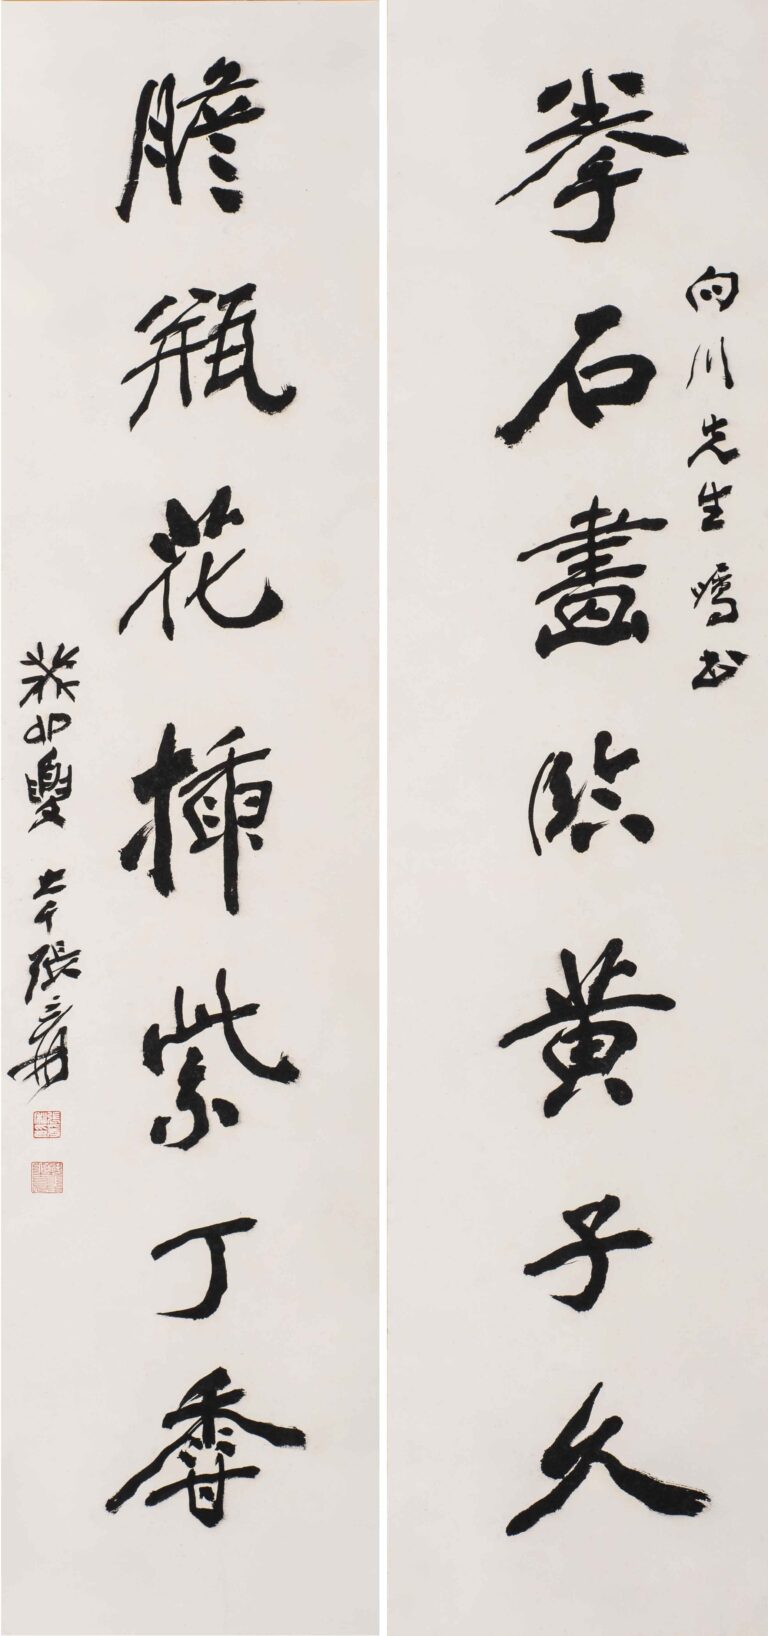 拳石畫臨黄子久
向川先生囑書
膽瓶花插紫丁香
癸卯夏 大千張爰